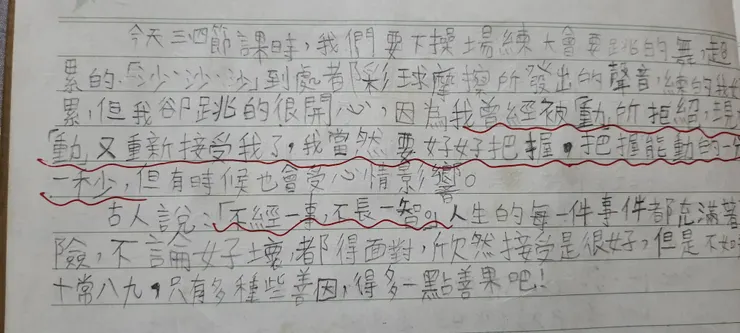 今天三四節課時，我們要下操場練大會要跳的舞，超
累的。「沙、沙、沙」到處都彩球摩擦所發出的聲音，練的我好
累，但我卻跳的很開心，因為我曾經被「動」所拒絕，現
「動」又重新接受我了，我當然要好好把握，把握能動的一分
一秒，但有時候也會受心情影響。
古人說：「不經一事，不長一智。」人生的每一件事件都充滿著
險，不論好壞，都得面對，欣然接受是很好，但是不如
十常八九，只有多種些善因，得多一點善果吧！